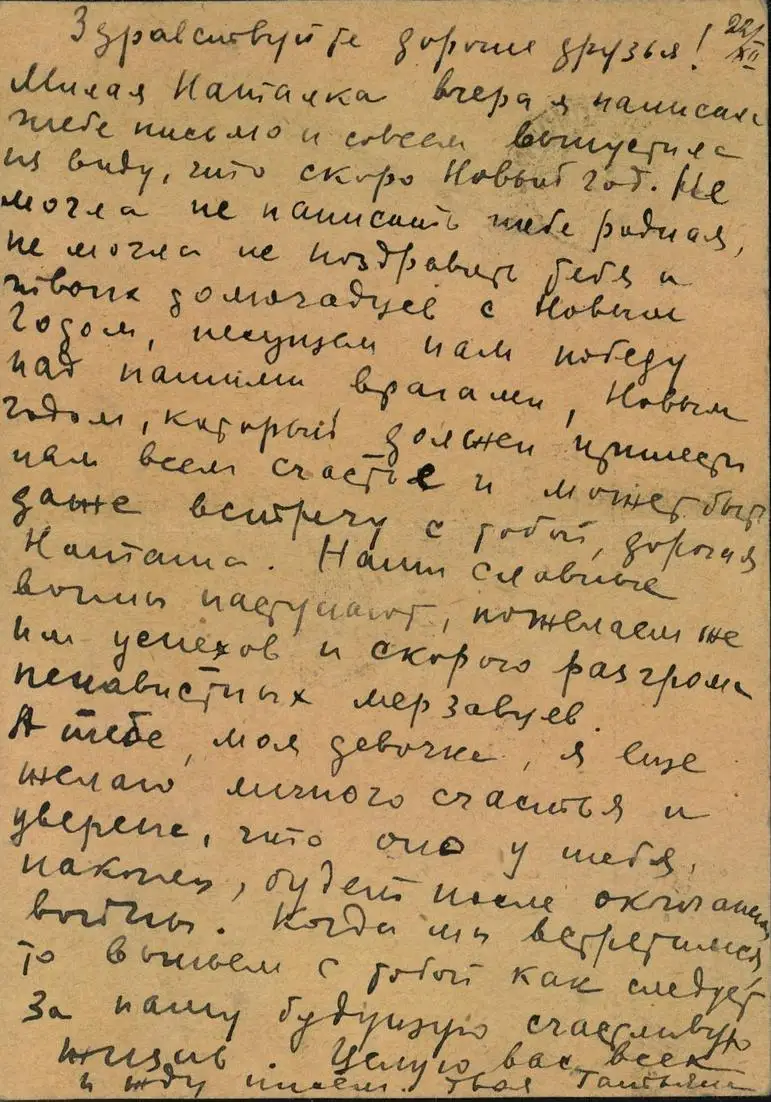 22/XII
Здравствуйте дорогие друзья!
Милая Наталка вчера я написала
тебе письмо и совсем выпустила
из виду, что скоро Новый год. Не
могла не написать тебе родная,
не могла не поздравить тебя и
твоих домочадцев с Новым
Годом, несущем нам победу
над нашими врагами, Новым
годом, который должен принести
нам всем счастье и может быть
даже встречу с тобой, дорогая
Наташа. Наши славные
воины наступают, пожелаем же
им успехов и скорого разгрома
ненавистных мерзавцев.
А тебе, моя девочка, я еще
желаю личного счастья и
уверена, что оно у тебя,
наконец, будет после окончания
войны. Когда мы встретимся,
то выпьем с тобой как следует
за нашу будущую счастливую
жизнь. Целую вас всех
и жду писем. твоя Татьяна